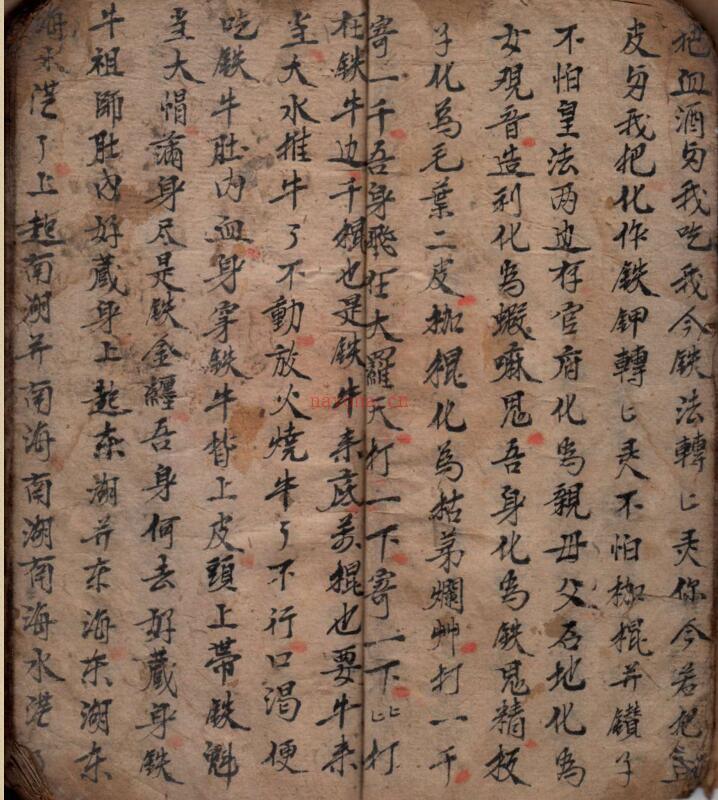 把血酒勻我吃我今鉄法轉匕灵你今若把
皮勻我把化作鉄鉀轉匕灵不怕枷棍并鑽子
不怕皇法两边存官府化為親母父石地化為
女观音造利化為蝦嘛鬼吾身化為鉄鬼精板
子化為毛葉二皮枷棍化為枯苐爛艸打一千
寄一千吾身飛在大羅天打一下寄一下匕打
在鉄牛边千棍也是鉄牛来底萬棍也要牛来
當大水推牛了不動放火燒牛了不行口渴便
吃鉄牛肚内血身穿鉄牛背上皮頭上带鉄魁
當大帽滿身尽是鉄金纏吾身何去好藏身鉄
牛祖師肚内好藏身上起东湖并东海东湖东
海水滾了上起南湖并南海南湖南海水滾了
nayona.cn